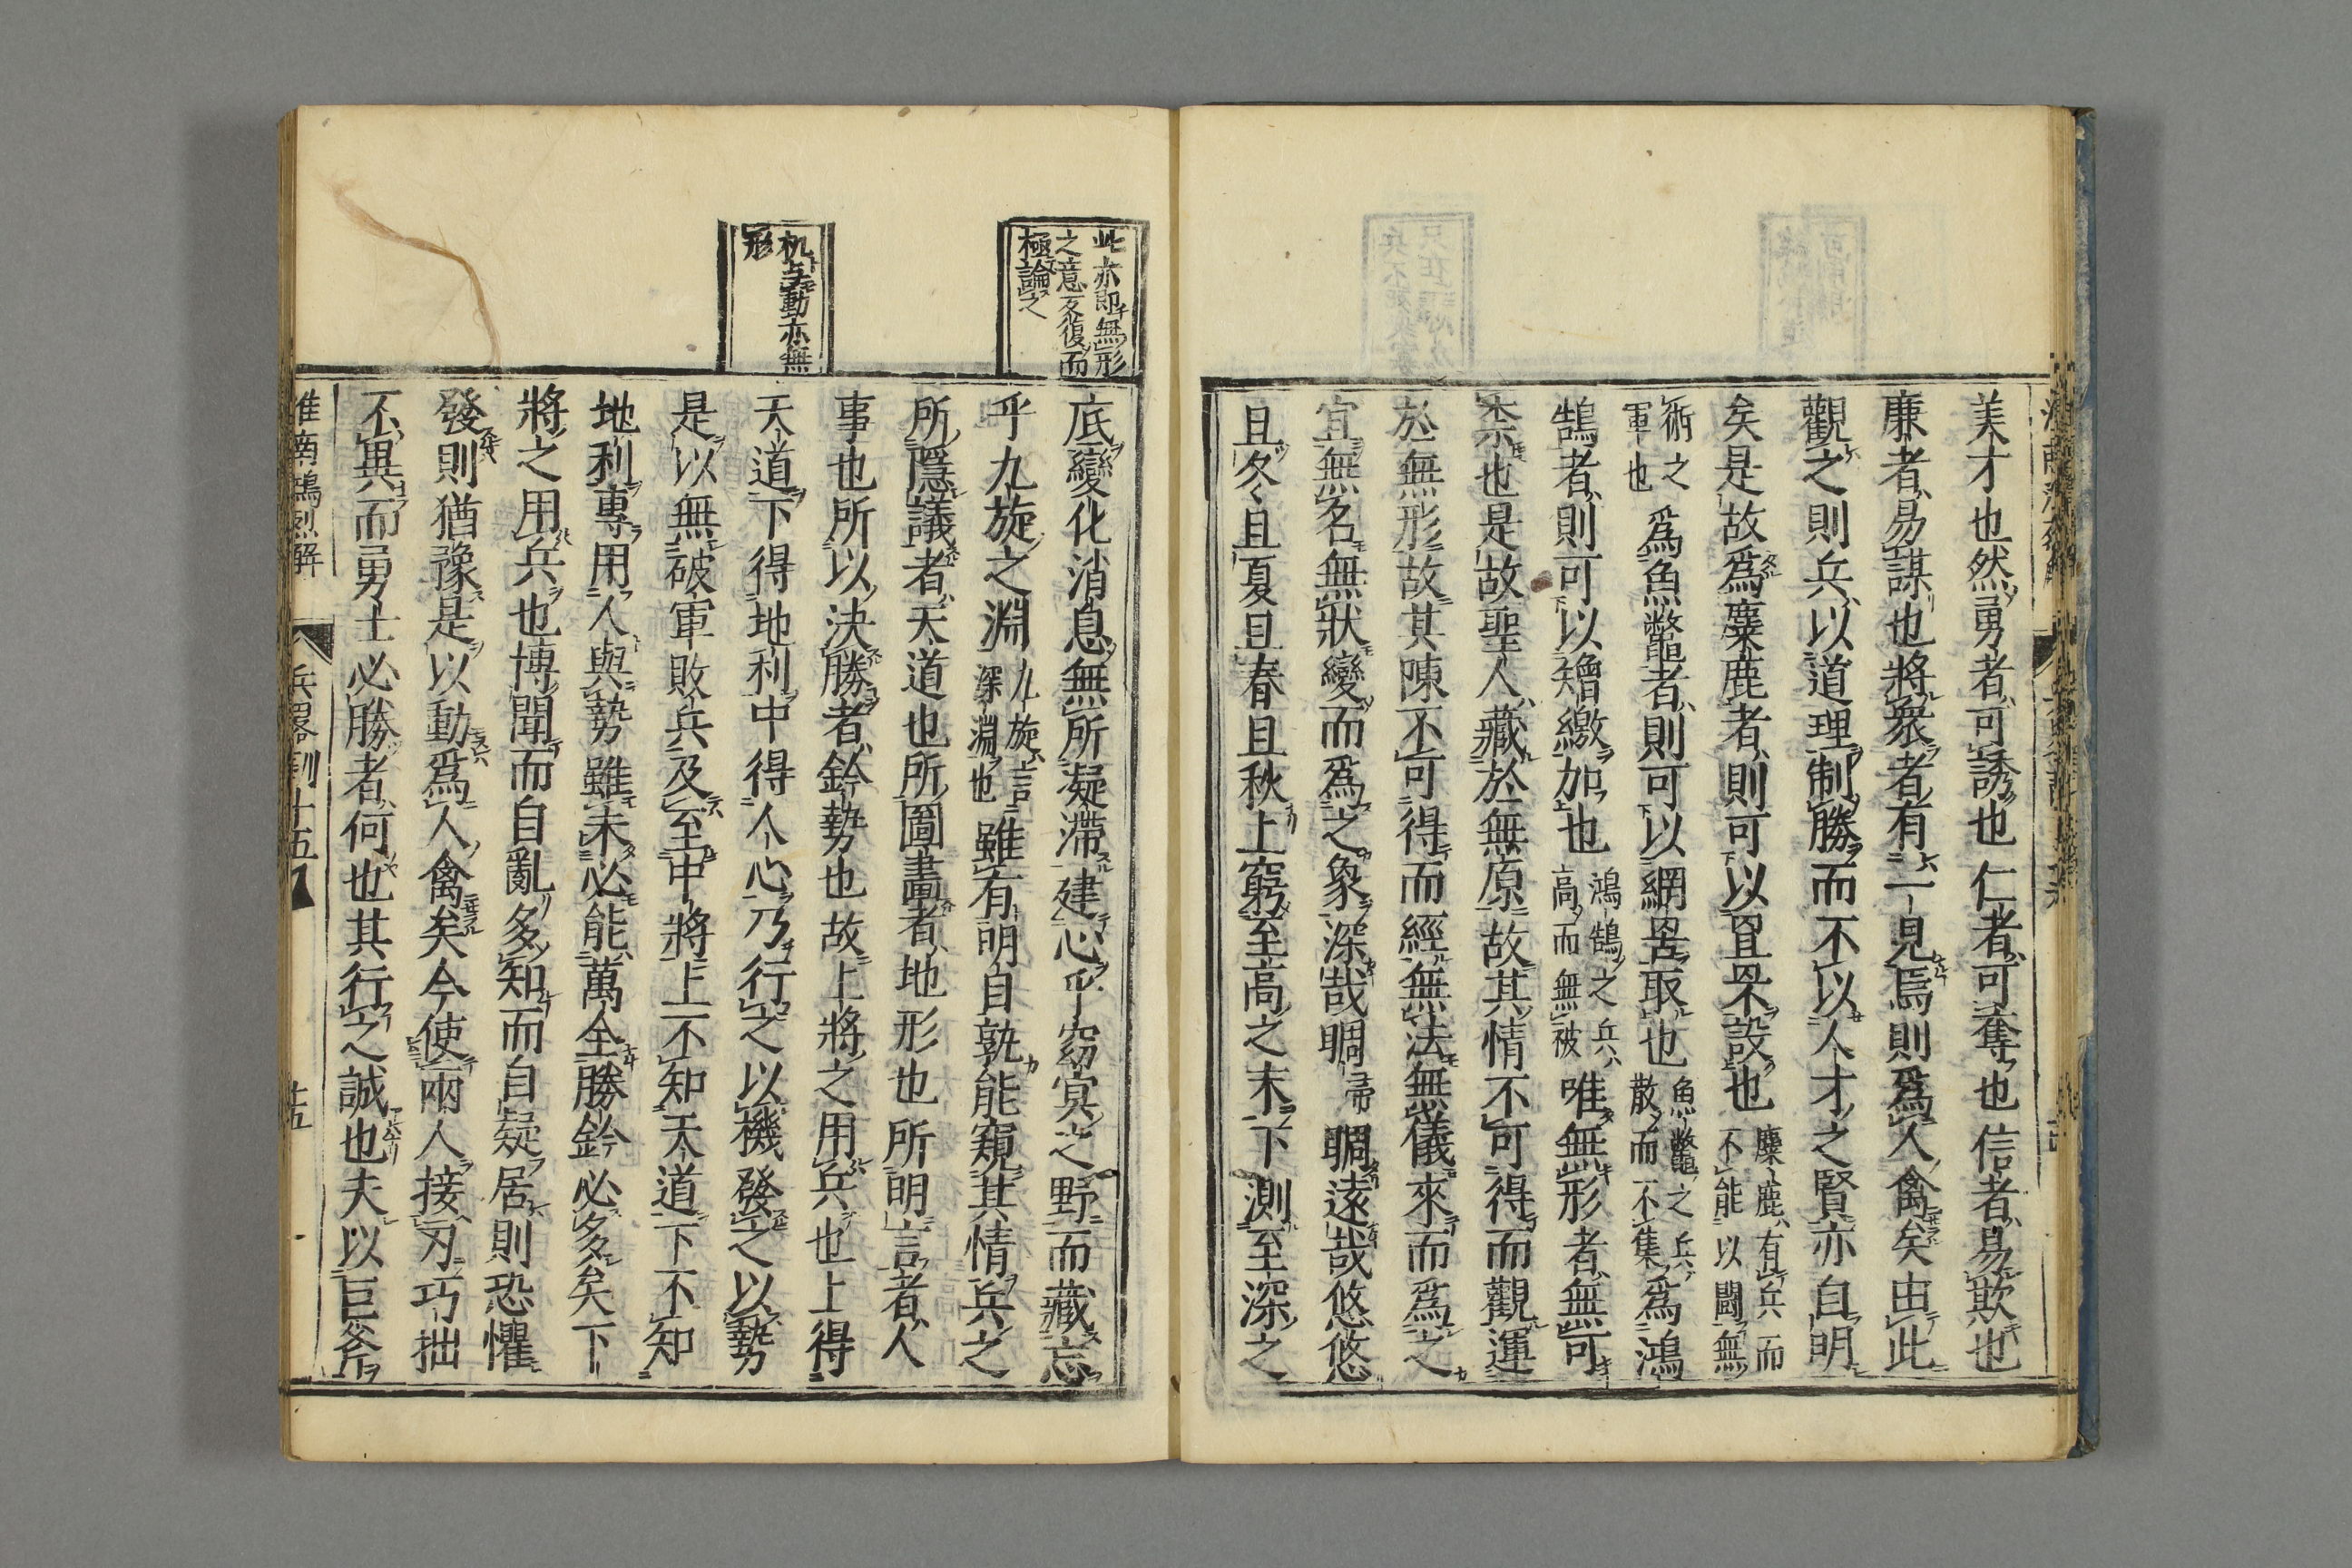 美才也然勇者可誘也仁者可奪也信者易欺也
廉者易謀也將衆者有一見焉則爲人禽矣由此
觀之則兵以道理制勝而不以人才之賢亦自明
矣是故爲麋鹿者則可以罝罘設也麋鹿有兵而不能以鬬無
術之軍也爲魚鼈者則可以網罟取也魚鼈之兵散而不集爲鴻
鵠者則可以矰繳加也鴻鵠之兵高而無被唯無形者無可
柰也是故聖人藏於無原故其情不可得而觀運
於無形故其陳不可得而經無法無儀來而爲之
宜無名無狀變而爲之象深哉䎳帚䎳遠哉悠悠
且冬且夏且春且秋上窮至高之末下測至深之
此亦即無形
之意反復而
極論之
机与動亦無
形
底變化消息無所凝滯建心乎窈冥之野而藏志
乎九旋之淵九旋言深淵也雖有明目孰能窺其情兵之
所隱議者天道也所圖畫者地形也所明言者人
事也所以決勝者鈐勢也故上將之用兵也上得
天道下得地利中得人心乃行之以機發之以勢
是以無破軍敗兵及至中將上不知天道下不知
地利專用人與勢雖未必能萬全勝鈐必多矣下
將之用兵也博聞而自亂多知而自疑居則恐懼
發則猶豫是以動爲人禽矣今使兩人接刃巧拙
不異而勇士必勝者何也其行之誠也夫以巨斧
淮南鴻烈解 兵畧訓十五 十五